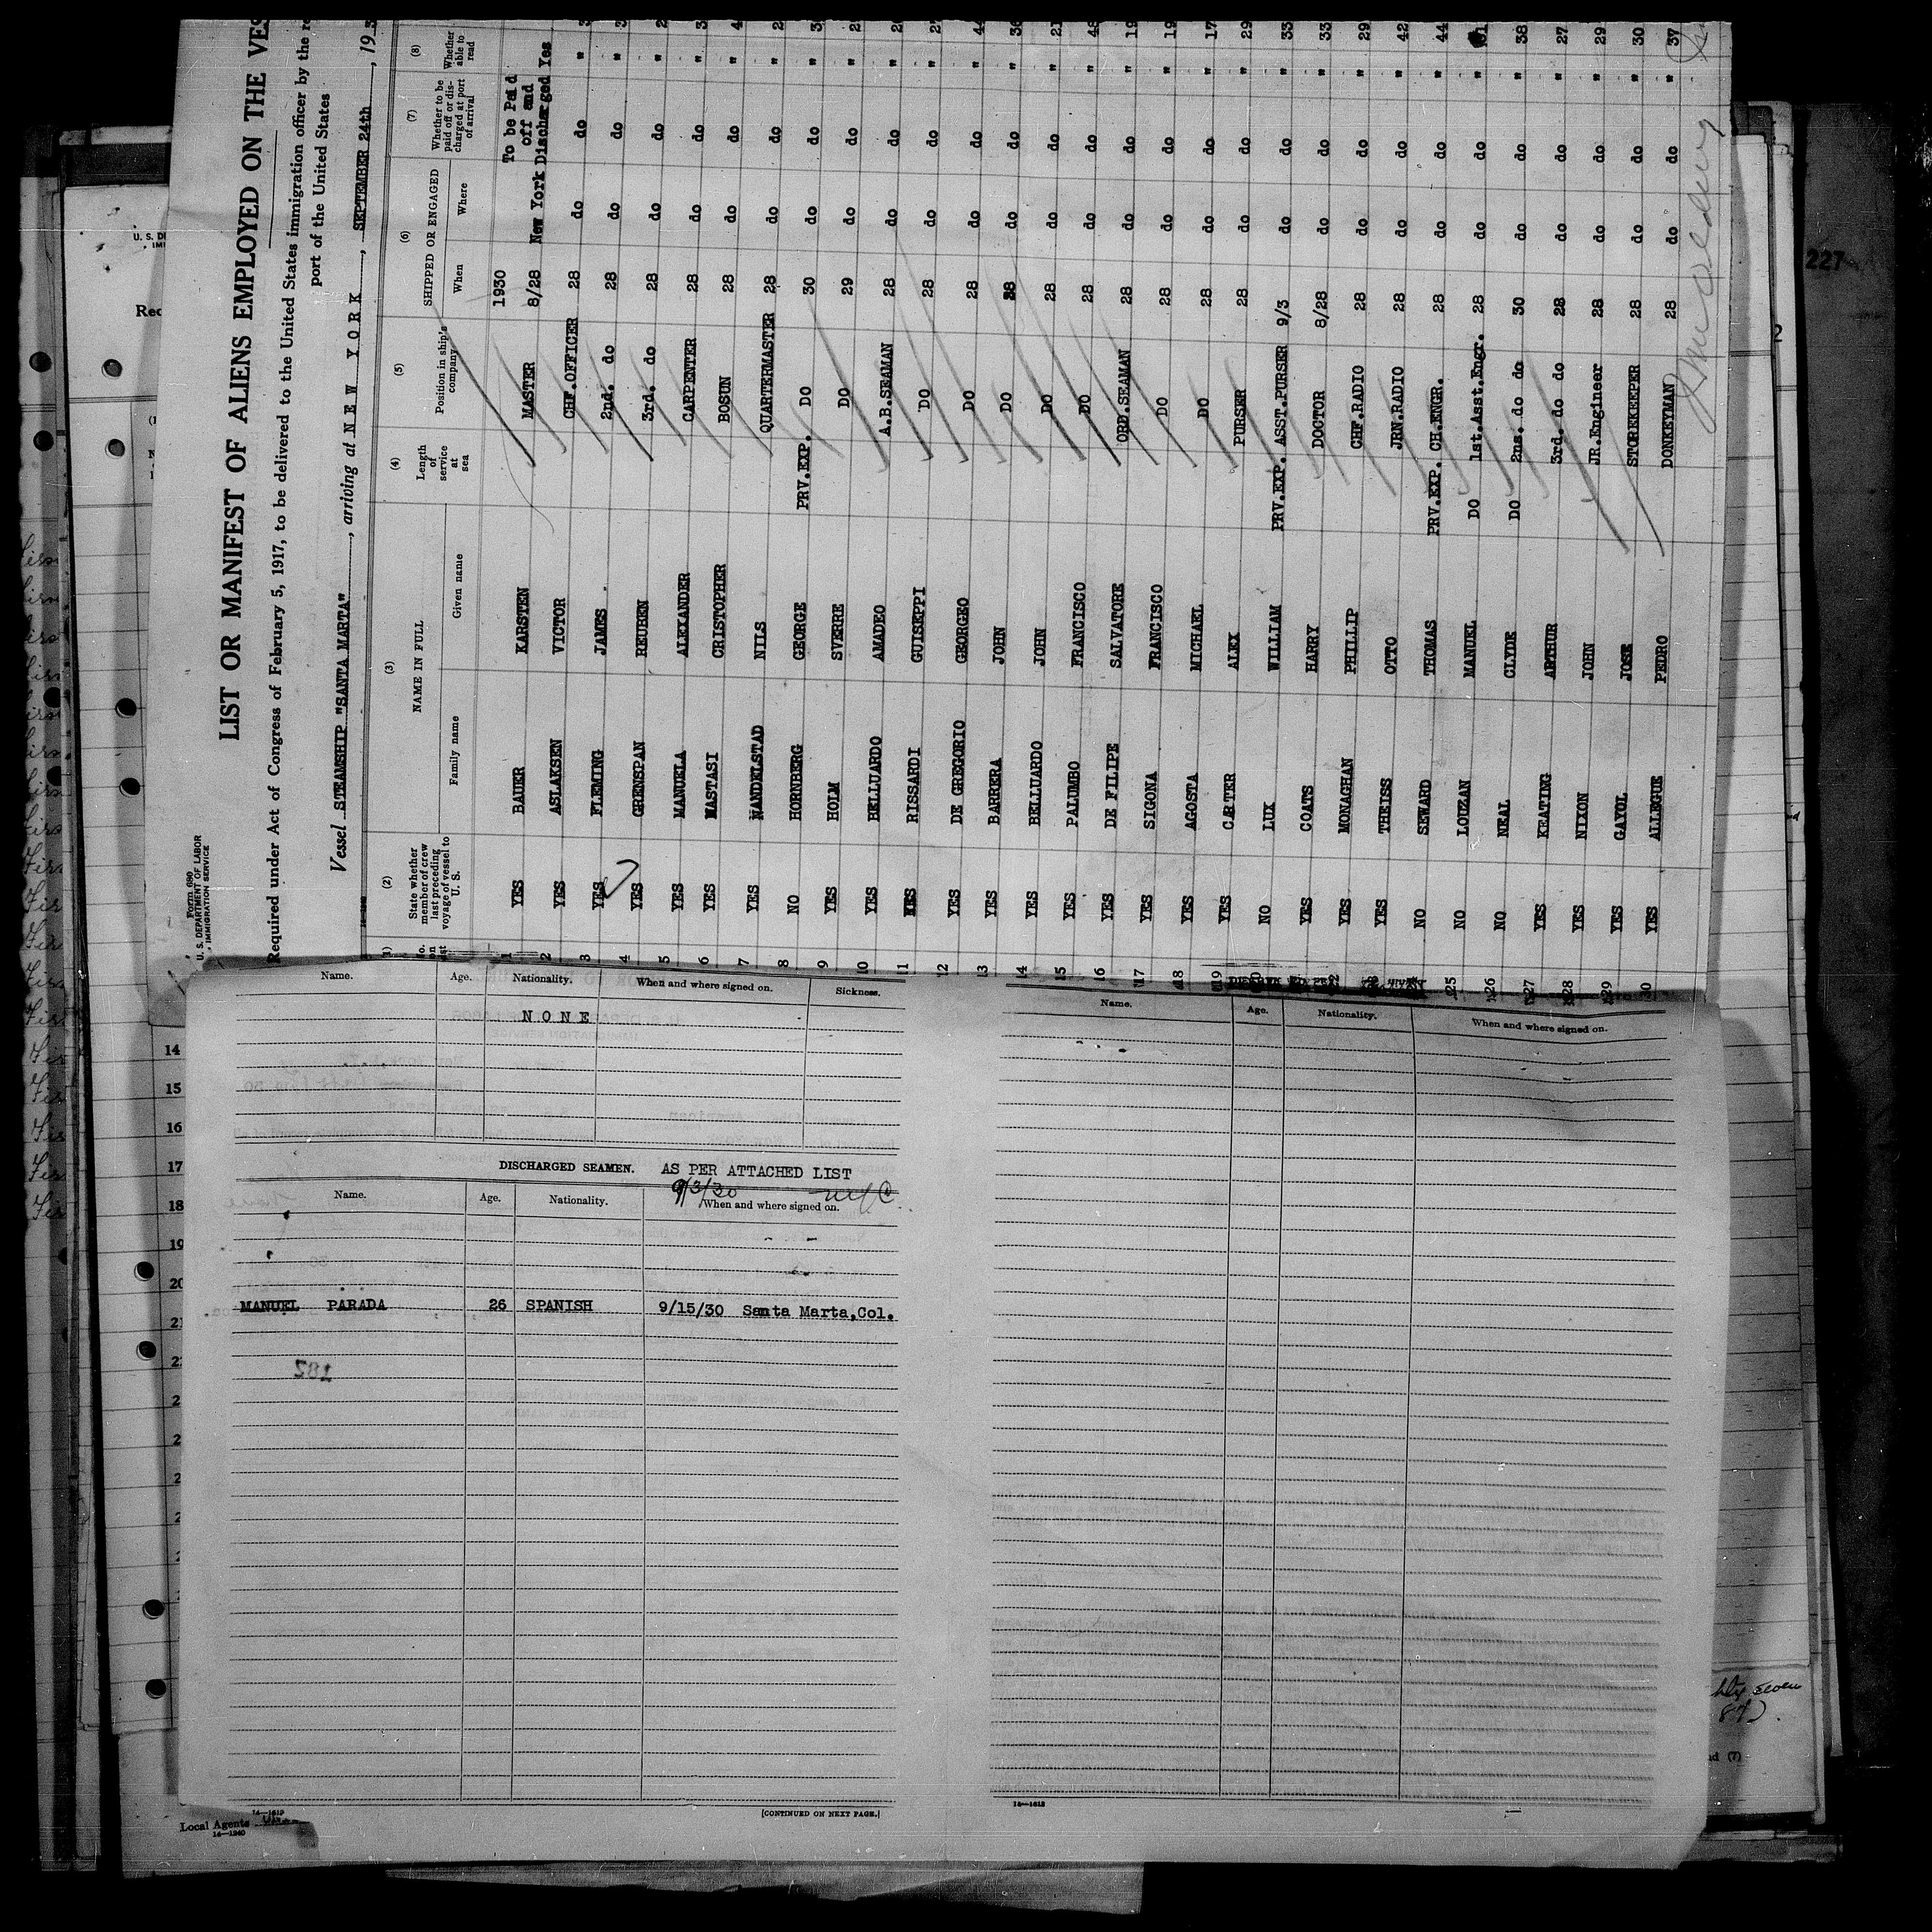 Form 680
U. S. DEPARTMENT OF LABOR
IMMIGRATION SERVICE
LIST OR MANIFEST OF ALIENS EMPLOYED ON THE VES
Required under Act of Congress of February 5, 1917, to be delivered to the United States immigration officer by the re
port of the United States
Vessel STEAMSHIP "SANTA MARTA", arriving at NEW YORK, SEPTEMBER 24th, 193
(1) (2) (3) (4) (5) (6) (7) (8)
State whether member of crew last preceding voyage of vessel to U. S.
NAME IN FULL
Family name Given name
Length of service at sea
Position in ship's company
SHIPPED OR ENGAGED
When Where
Whether to be paid off or discharged at port of arrival
Whether able to read
1930 To be Paid off and
1 YES BAUER KARSTEN MASTER 8/28 New York Discharged Yes
2 YES ASLAKSEN VICTOR CHF.OFFICER 28 do do "
3 YES FLEMING JAMES 2nd. do 28 do do "
4 YES GRENSPAN REUBEN 3rd. do 28 do do "
5 YES MANUELA ALEXANDER CARPENTER 28 do do "
6 YES MASTASI CRISTOPHER BOSUN 28 do do "
7 YES NANDELSTAD NILS QUARTERMASTER 28 do do "
8 NO HORNBERG GEORGE PRV.EXP. DO 30 do do "
9 YES HOLM SVERRE DO 29 do do "
10 YES BELLUARDO AMADEO A.B.SEAMAN 28 do do "
11 YES RISSARDI GUISEPPI DO 28 do do "
12 YES DE GREGORIO GEORGEO DO 28 do do " 44
13 YES BARRERA JOHN DO 28 do do " 36
14 YES BELLUARDO JOHN DO 28 do do " 21
15 YES PALUMBO FRANCISCO DO 28 do do " 48
16 YES DE FILIPE SALVATORE ORD.SEAMAN 28 do do " 19
17 YES SIGONA FRANCISCO DO 28 do do " 19
18 YES AGOSTA MICHAEL DO 28 do do " 17
19 YES CARTER ALEX PURSER 28 do do " 29
20 NO LUX WILLIAM PRV.EXP. ASST.PURSER 9/3 do do " 33
YES COATS HARRY DOCTOR 8/28 do do " 33
22 YES MONAGHAN PHILLIP CHF.RADIO 28 do do " 29
YES THEISS OTTO JRN.RADIO 28 do do " 42
NO SEWARD THOMAS PRV.EXP. CH.ENGR. 28 do do " 44
25 NO LOUZAN MANUEL DO 1st.Asst.Engr. 28 do do "
26 NO NEAL CLYDE DO 2ns. do do 30 do do " 38
27 YES KEATING ARTHUR 3rd. do do 28 do do " 27
28 YES NIXON JOHN JR.Engineer 28 do do " 29
29 YES GAYOL JOSE STOREKEEPER 28 do do " 30
30 YES ALLEGUE PEDRO DONKEYMAN 28 do do " 37
227
Name. Age. Nationality. When and where signed on. Sickness.
NONE
DISCHARGED SEAMEN. AS PER ATTACHED LIST
9/3/30 NYC
Name. Age. Nationality. When and where signed on.
MANUEL PARADA 26 SPANISH 9/15/30 Santa Marta,Col.
[CONTINUED ON NEXT PAGE.]
Name. Age. Nationality. When and where signed on.
14
15
16
17
18
19
20
21
Local Agents
14—1240
seven
87)